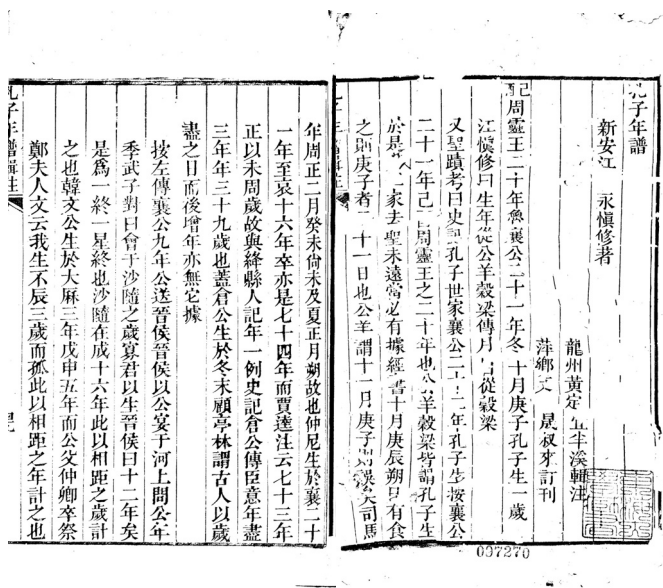 孔子年譜
新安江　永愼修著
龍州黃定宜半溪輯注
萍鄉文　晟叔來訂刊
己酉周靈王二十年魯襄公二十一年冬十月庚子孔子生一歲
江愼修曰生年從公羊穀梁傳月日從穀梁
又聖蹟考曰史記孔子世家襄公二十二年孔子生按襄公
二十一年己酉周靈王之二十年也公羊穀梁皆謂孔子生
於是年二家去聖未遠當必有據經書十月庚辰朔日有食
之則庚子者二十一日也公羊謂十一月庚子則誤矣司馬
年周正二月癸未尙未及夏正月朔故也仲尼生於襄二十
一年至哀十六年卒亦是七十四年而賈逵注云七十三年
正以未周歲故與絳縣人記年一例史記倉公傳臣意年盡
三年年三十九歲也蓋倉公生於冬末顧亭林謂古人以歲
盡之日而後增年亦無它據
按左傳襄公九年公送晉侯晉侯以公宴于河上問公年
季武子對曰會于沙隨之歲寡君以生晉侯曰十二年矣
是爲一終一星終也沙隨在成十六年此以相距之歲計
之也韓文公生於大厤三年戊申五年而公父仲卿卒祭
鄭夫人文云我生不辰三歲而孤此以相距之年計之也
孔子年譜輯註
097270